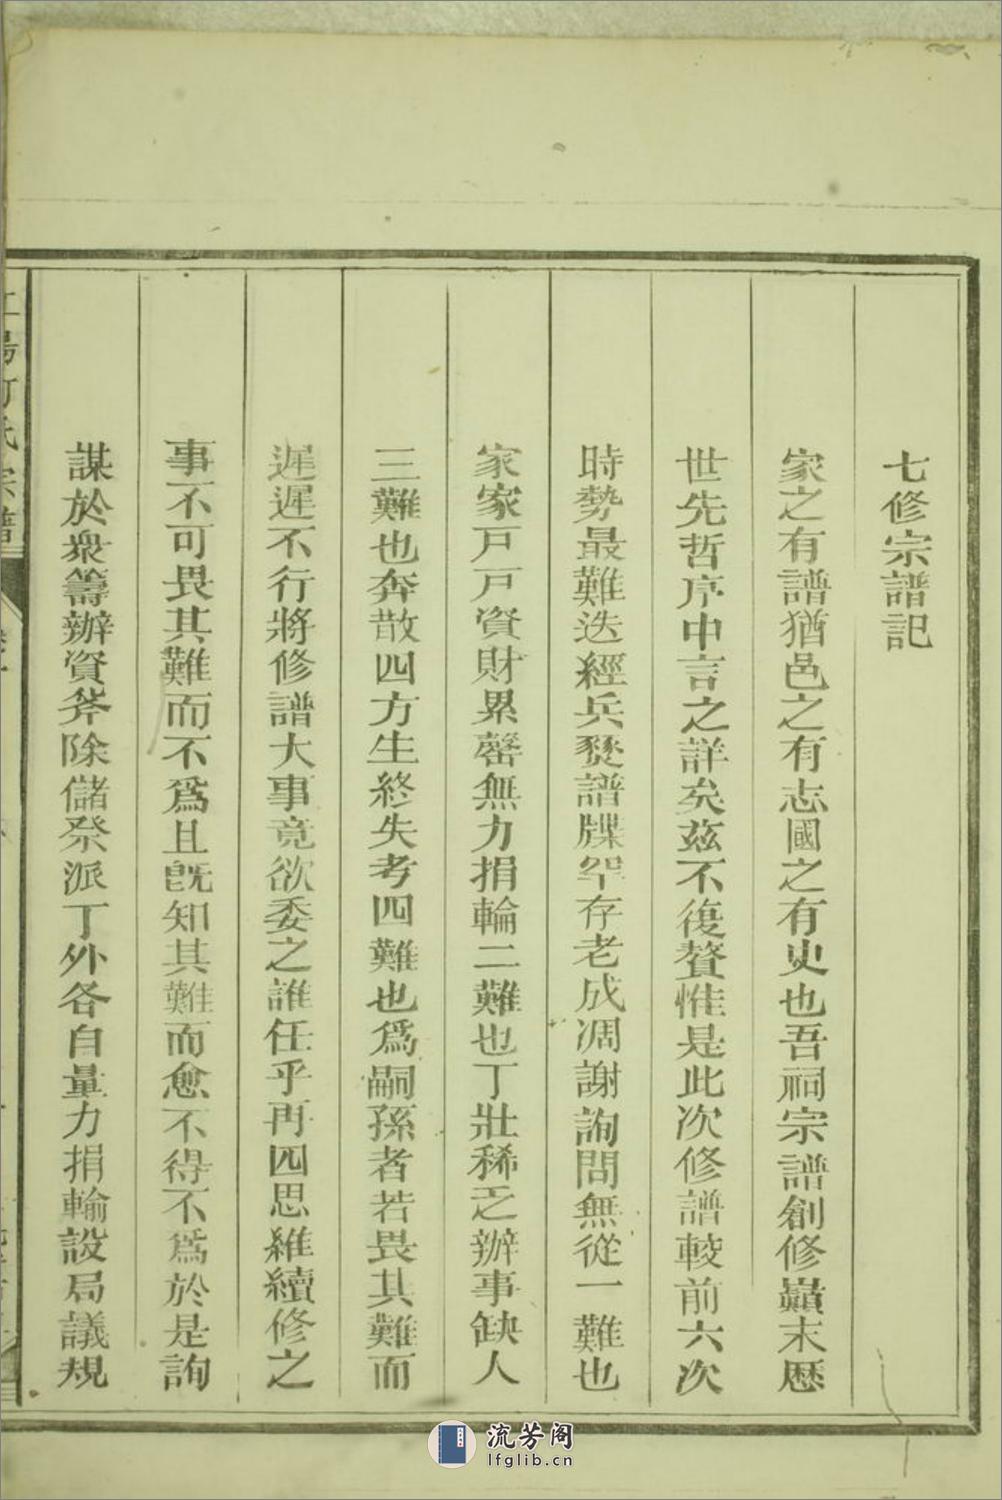 七修宗譜記
家之有譜猶邑之有志國之有史也吾祠宗譜創修巔末歷
世先哲序中言之詳矣茲不復贅惟是此次修譜較前六次
時勢最難迭經兵燹譜牒罕存老成凋謝詢問無從一難也
家家戸戸資財累罄無力捐輪二難也丁壯稀乏辦事缺人
三難也奔散四方生終失考四難也爲嗣孫者若畏其難而
遲遲不行將修譜大事竟欲委之誰任乎再四思維續修之
事不可畏其難而不爲且旣知其難而愈不得不爲於是詢
謀於衆籌辦資斧除儲祭派丁外各自量力捐輸設局議規
氏宗譜
流芳阁
lfglib.cn